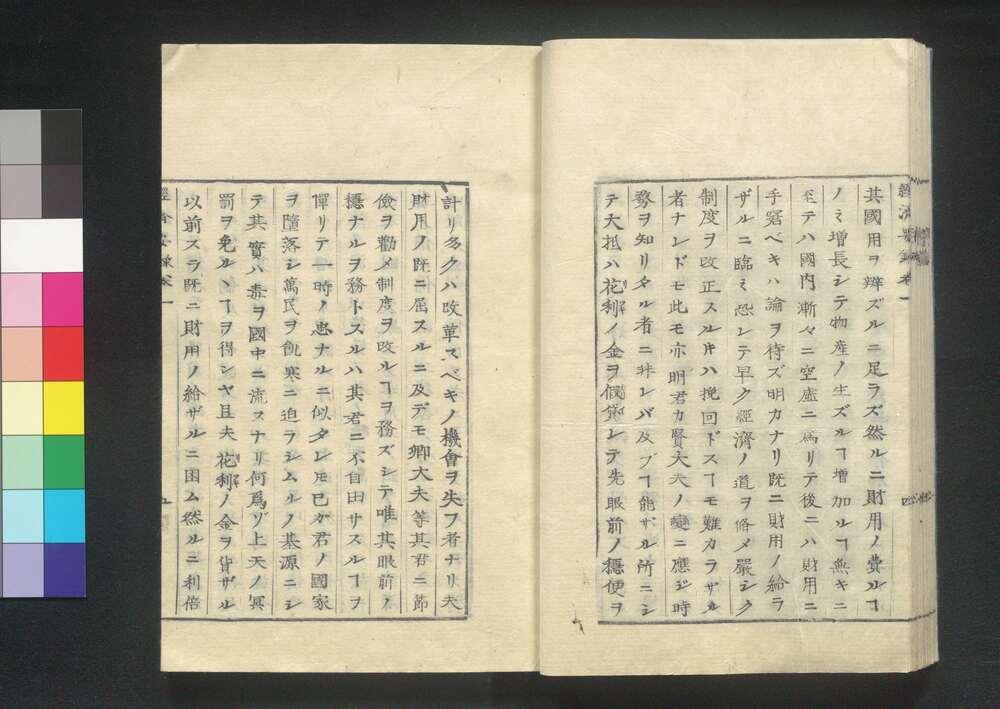 經濟要録卷一
其國用ヲ辨ズルニ足ラズ然ルニ財用ノ費ルヿ
ノミ増長シテ物産ノ生ズルヿ増加ルヿ無キニ
至テハ國内漸々ニ空虚ニ爲リテ後ニハ財用ニ
手窘ベキハ論ヲ待ズ明カナリ既ニ財用ノ給ラ
ザルニ臨ミ恐レテ早ク經濟ノ道ヲ脩メ嚴シク
制度ヲ改正スルキハ挽回ドスヿモ難カラザル
者ナレドモ此モ亦明君カ賢大夫ノ變ニ應ジ時
務ヲ知リタル者ニ非レバ及ブヿ能ザル所ニシ
テ大抵ハ花利ノ金ヲ假貸シテ先眼前ノ穩便ヲ
四
計リ多クハ改革スベキノ機會ヲ失フ者ナリ夫
財用ノ既ニ屈スルニ及デモ卿大夫等其君ニ節
儉ヲ勸メ制度ヲ改ルヿヲ務ズシテ唯其眼前ノ
穩ナルヲ務トスルハ其君ニ不自由サスルヿヲ
憚リテ一時ノ忠ナルニ似タレモ已ガ君ノ國家
ヲ墮落シ萬民ヲ飢寒ニ迫ラシムルノ基源ニシ
テ其實ハ毒ヲ國中ニ流スナリ何爲ゾ上天ノ冥
罰ヲ免ルヽヿヲ得ンヤ且夫花利ノ金ヲ貸ザル
以前スラ既ニ財用ノ給ザルニ困ム然ルニ利倍
經濟要録卷一
五